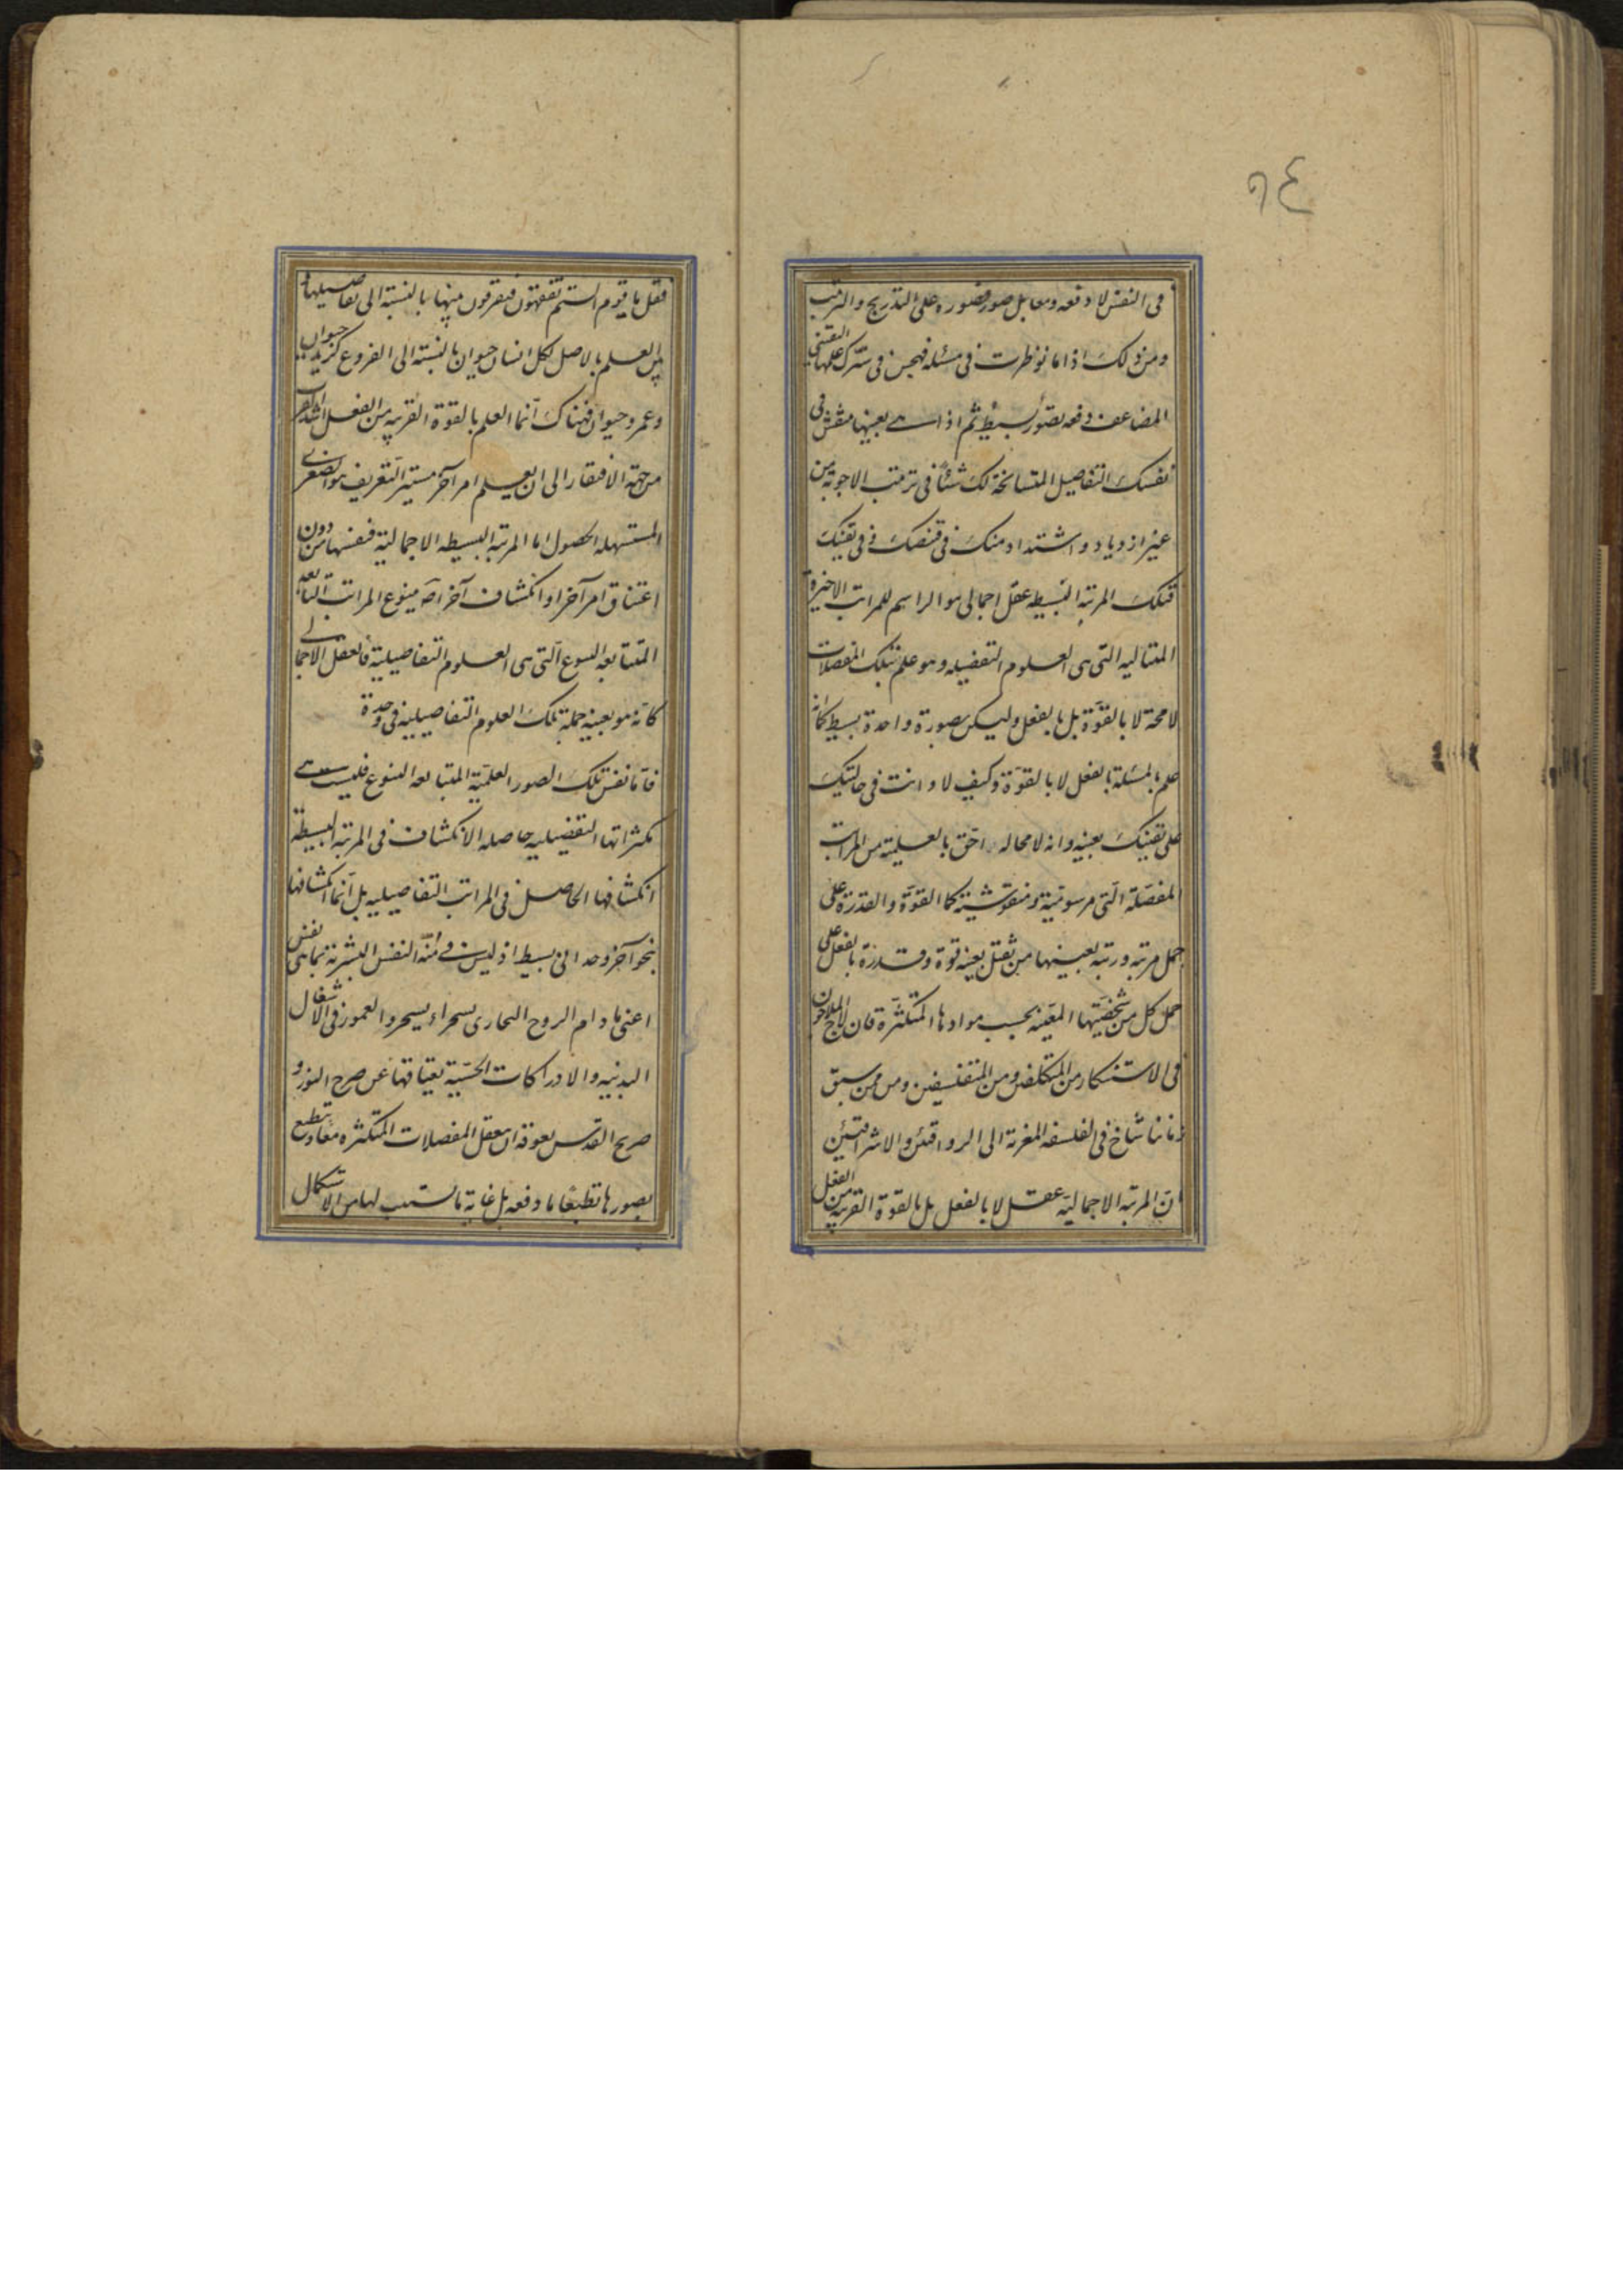 ٩٤
فى النفس لا دفعه ومعا بل صورة فصوره على التدريج والترتب
ومن ذلك اذا ما نوظرت فى مسئله فهجس فى سرك علمها
المضاعف دفعه بصور بسيط ثم اذا هى بعينها منقش فى
نفسك التفاصيل المتسانخة لك شيئا فى ترتب الاجوبة من
غير ازدياد واشتداد منك فى قنصك وفى يقينك
فتلك المرتبه البسيطه عقل اجمالى هو الراسم للمراتب الاخيرة
المتتاليه التى هى العلوم التفضيله وهو علم بتلك المفصلات
لا محة لا بالقوة بل بالفعل وليكن بصورة واحدة بسيط كانه
علم بالمسئلة بالفعل لا بالقوة وكيف لا وانت فى حالتيك
على يقينك بعينه وانه لا محاله احق بالعلمية من المراتب
المفصلة التى مرسومية ومنقوشية كما القوة والقدرة على
حمل مرتبه ورتبه بعينها من ثقل بعينه قوة وقدرة بالفعل على
حمل كل من شخصيتها المعينه بحسب موادها المتكثرة فان لاج الملاجون
فى الاستنكار من المتكلفين ومن المتفلسفين ومن ممن سبق
زماننا شاخ فى الفلسفه المغربة الى الرواقيين والاشراقيين
ان المرتبه الاجمالية عقل لا بالفعل بل بالقوة القريبه من الفعل
فقل يا قوم الستم تفقهون فتفرقون بينها بالنسبة الى تفاصيلها
بين العلم بالاصل ككل انسان حيوان بالنسبة الى الفروع كزيد حيوان
وعمرو حيوان فهناك انما العلم بالقوة القريبه من الفعل
من جهة الافتقار الى ان يعلم امر آخر متيسر التعريف هو الصغرى
المستسهله الحصول اما المرتبه البسيطه الاجمالية فنفسها من دون
اعتناق امر آخر او انكشاف آخر اصه ينبوع المراتب التابعه
المتتابعه النبوع التى هى العلوم التفاصيلية فالعقل الاجمالى
كانه هو بعينه جملة تلك العلوم التفاصيلية فى وحدة
فاما نفس تلك الصور العلمية المتتابعه النبوع فليست هى
بكثراتها التفضيليه حاصله الانكشاف فى المرتبه البسيطة
انكشافها الحاصل فى المراتب التفاصيليه بل انما انكشافها
بنحو آخر وحدانى بسيط اذ ليس فى منة النفس البشرية بما هى نفس
اعنى ما دام الروح البخارى والعمور فى الاشغال
البدنيه والادراكات الحسية يعتاقها عن صرح النور و
صريح القدس بعوقه ان يعقل المفصلات المتكثره معا وتنطبع
بصورها تطبعا ما دفعه بل غاية ما تستتب لها من الاستكمال